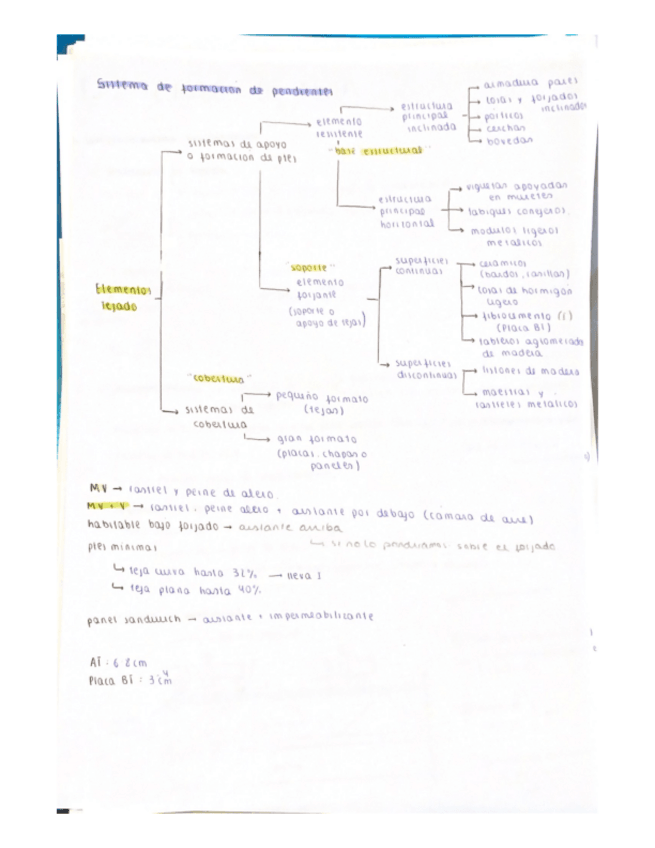 Sistema de formacion de pendientes
Elementos
tejado
sistemas de apoyo
o formacion de ptes
elemento
resistente
"base estructural"
estructura
principal
inclinada
armadura pares
losas y forjados
inclinados
porticos
cerchas
bovedas
estructura
principal
horizontal
viguetas apoyadas
en muretes
tabiques conejeros.
modulos ligeros
metalicos
"soporte"
elemento
forjante
(soporte o
apoyo de tejas)
superficies
continuas
ceramicos
(bardos, rasillas)
losas de hormigon
ligero
fibrocemento
(Placa BT)
tableros aglomerado
de madera
superficies
discontinuas
listones de madera
maestras y
rastreles metalicos
"cobertura"
sistemas de
cobertura
pequeño formato
(tejas)
gran formato
(placas, chapas o
paneles)
MV → rastrel y peine de alero.
MV + V → rastrel, peine alero + aislante por debajo (camara de aire)
habitable bajo forjado → aislante arriba
↳ si no lo pondriamos sobre el forjado
ptes minimas
↳ teja curva hasta 32% → neva 1
↳ teja plana hasta 40%
panel sandwich → aislante + impermeabilizante
AT: 6 8 cm
Placa BT = 3 cm